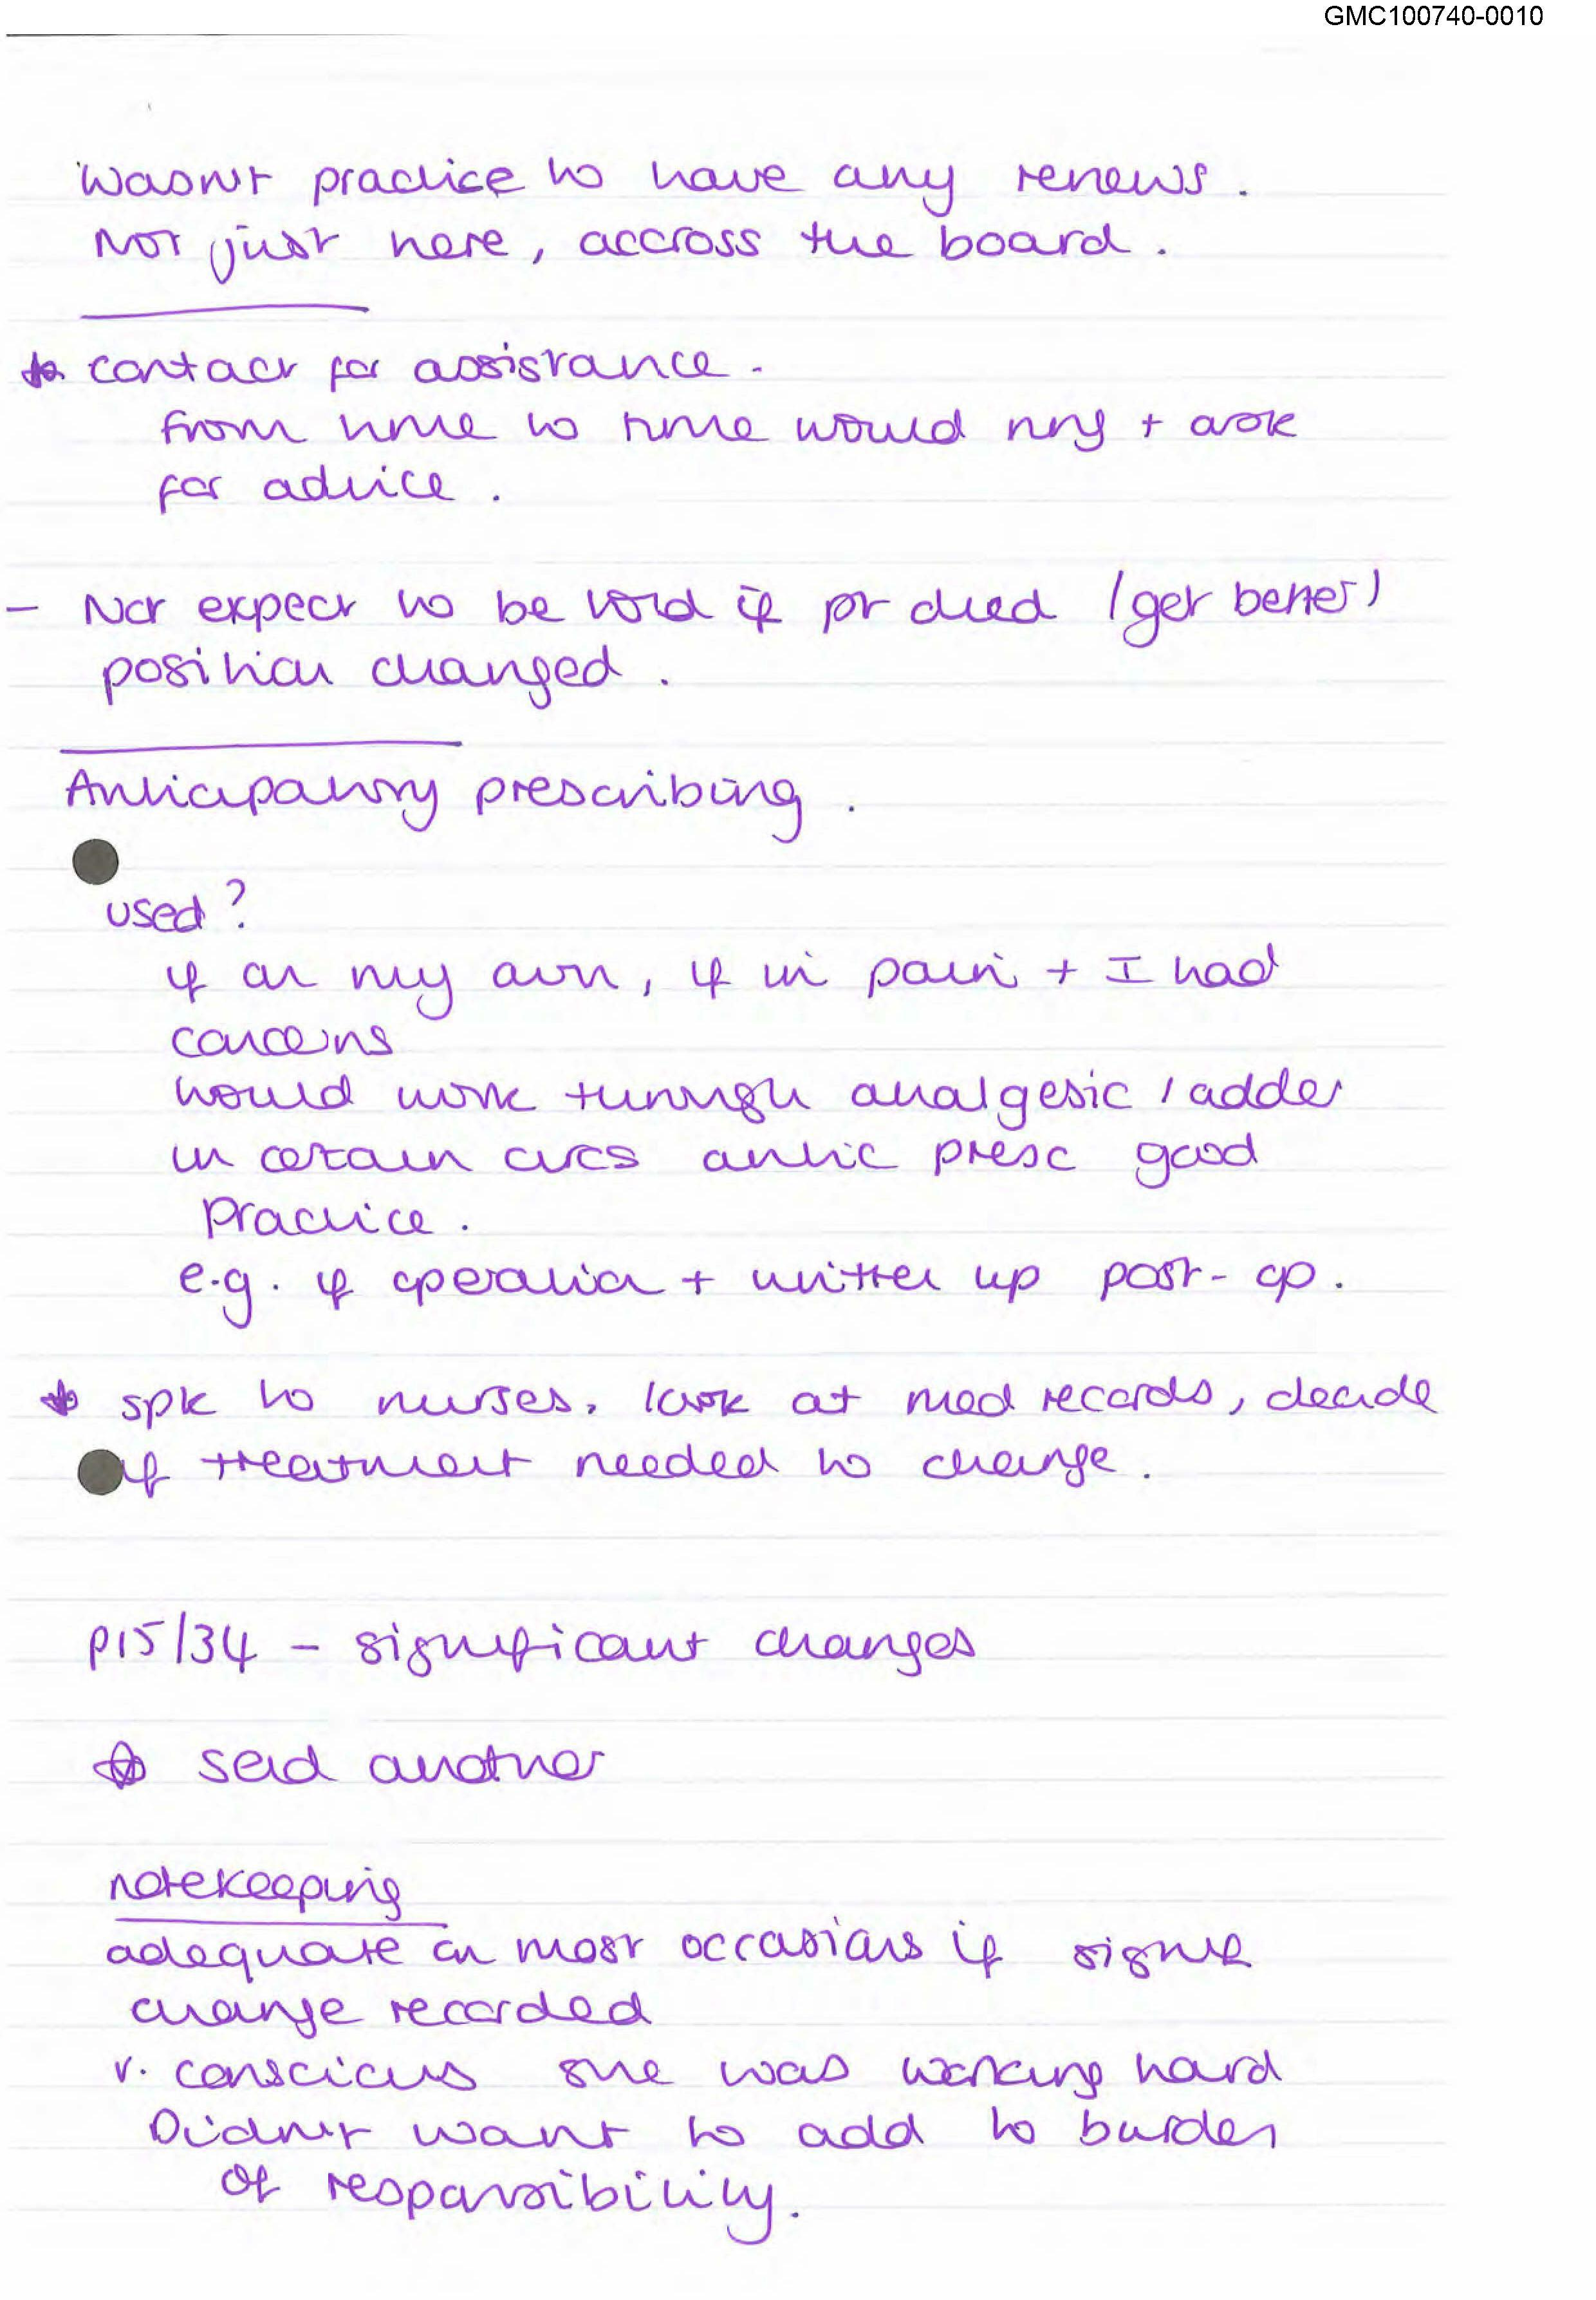 GMC100740-0010
Wasn't practice to have any renews.
Not just here, accross the board.
* contact for assistance.
from time to time would ring + ask
for advice.
- Not expect to be told if pt died (get better)
position changed.
Anticipatory prescribing.
used?
if on my own, if in pain + I had
concerns
would work through analgesic ladder
in certain circs antic presc good
practice.
e.g. if operation + written up post-op.
* spk to nurses, look at med records, decide
if treatment needed to change.
p15/34 - significant changes
* said another
notekeeping
adequate on most occasions if signif
change recorded
v. conscious she was working hard
Didn't want to add to burden
of responsibility.